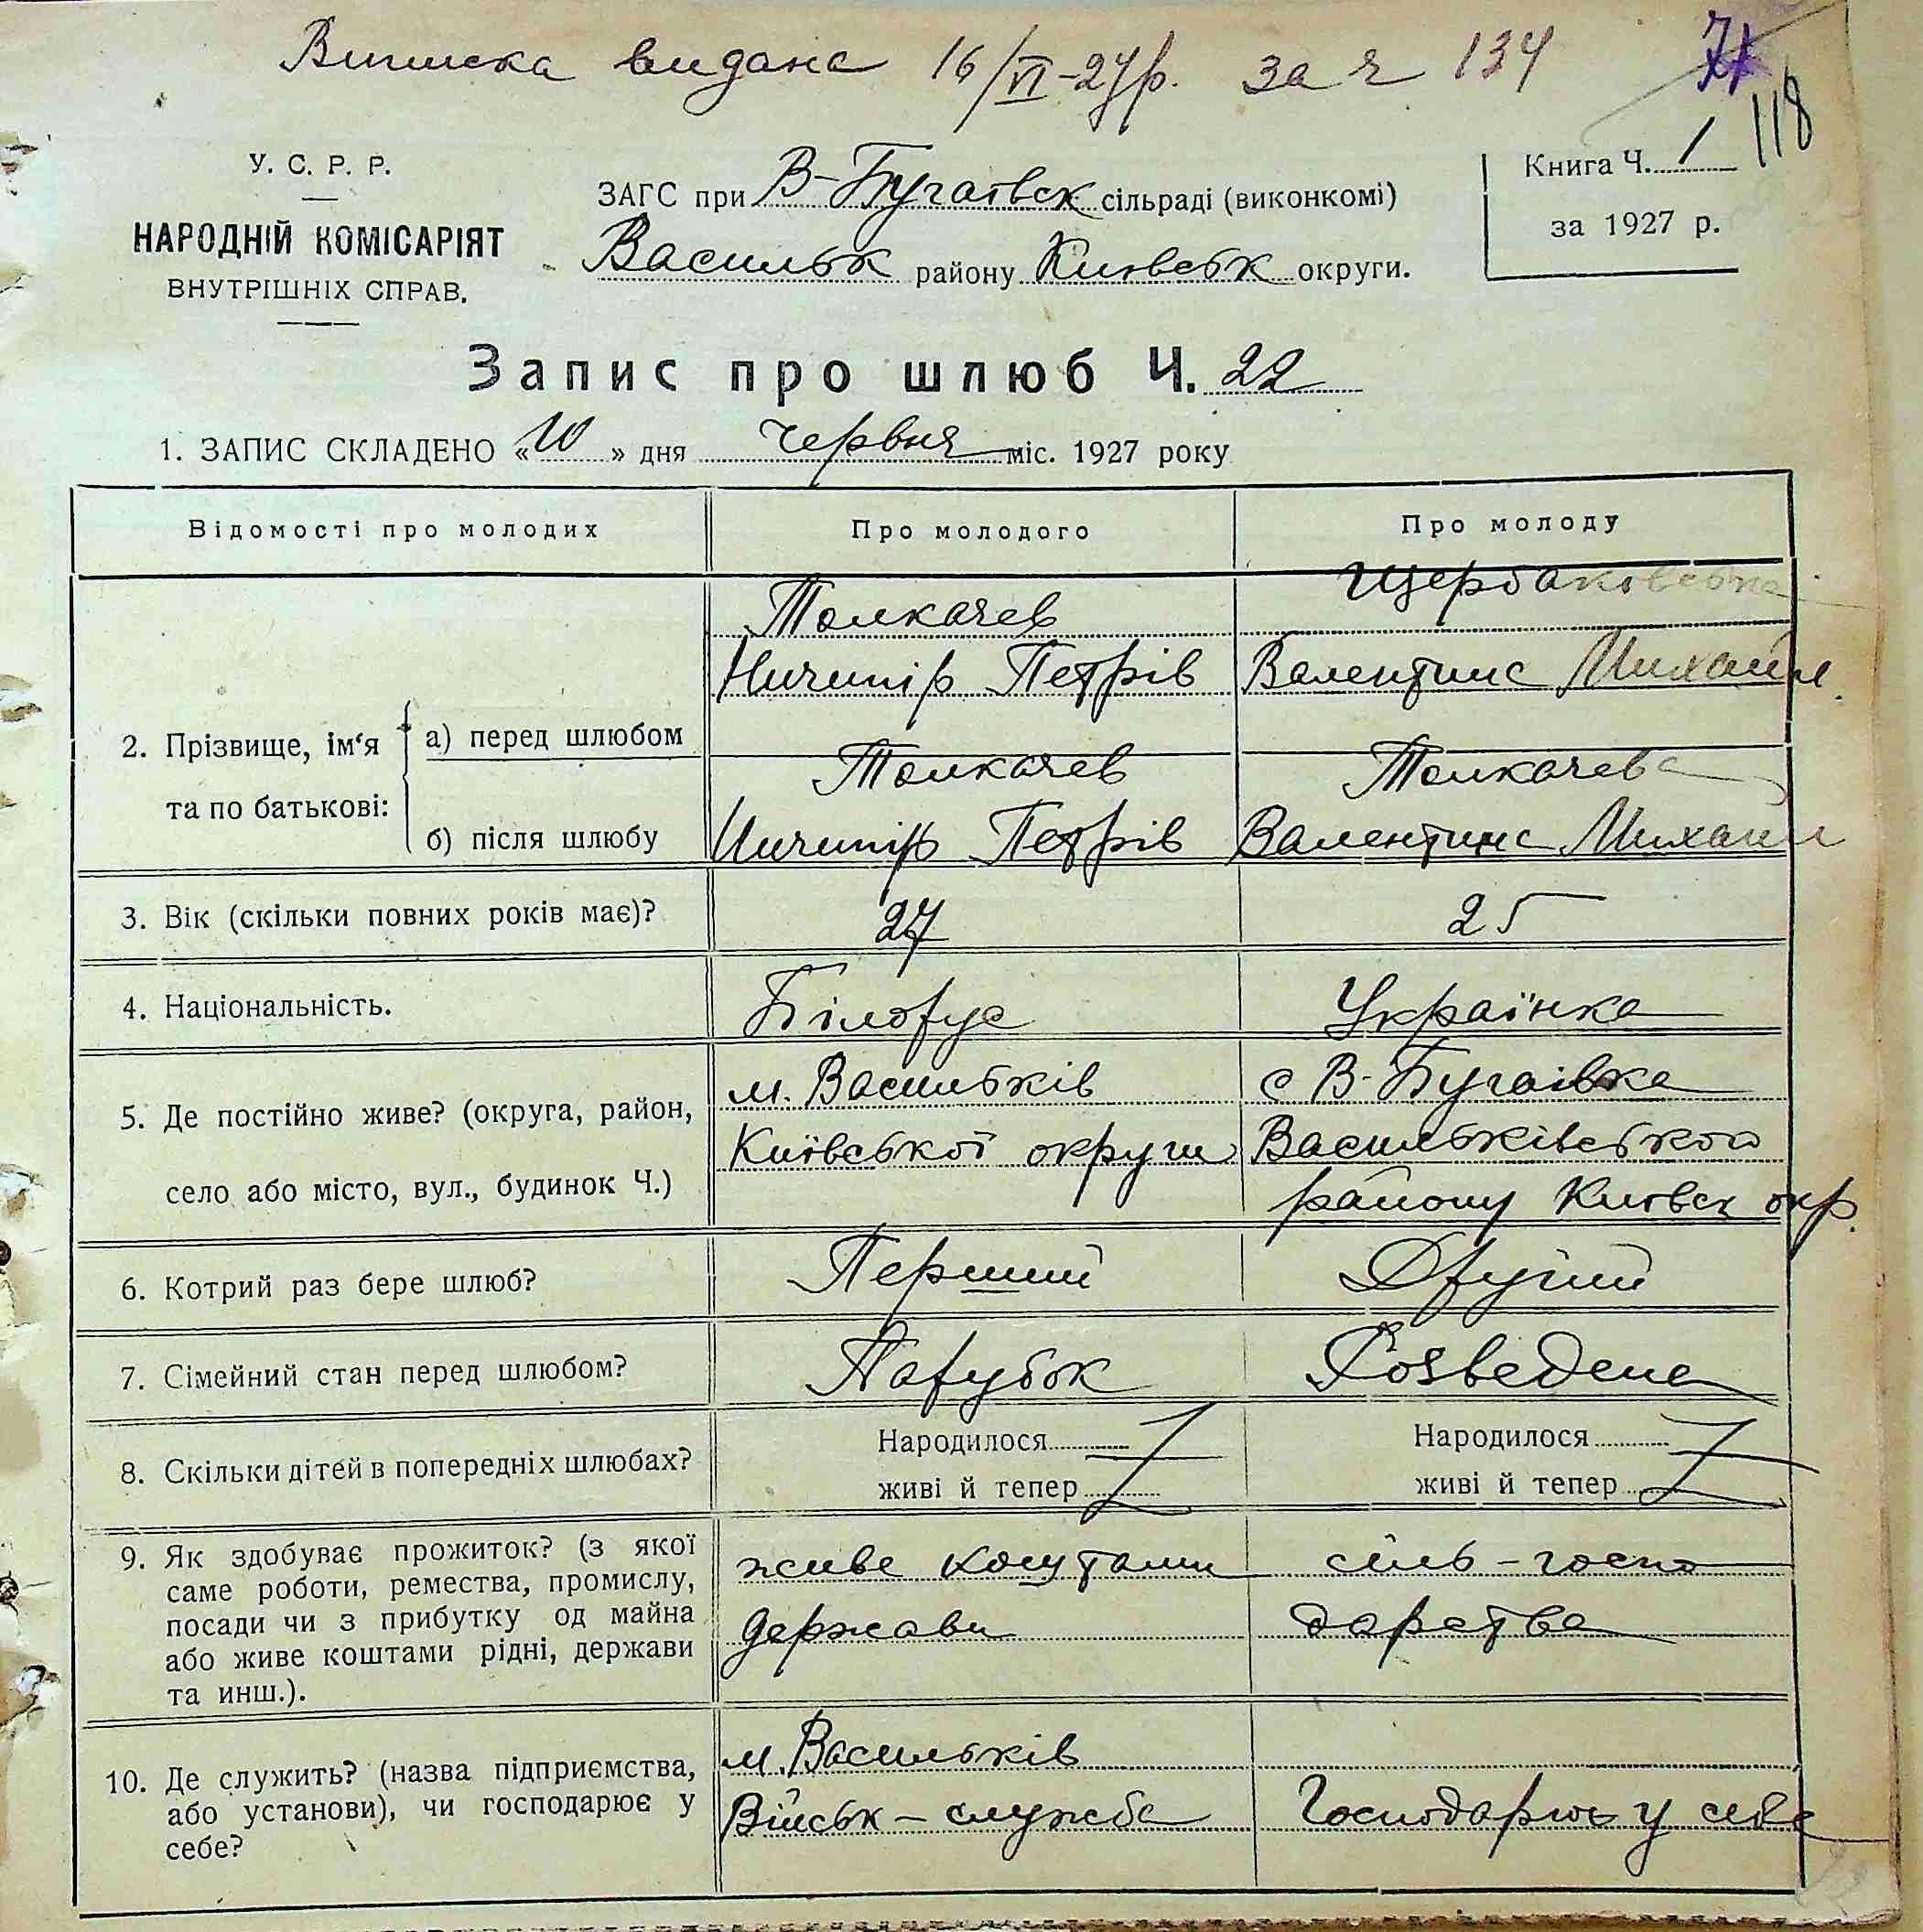 Виписка видана 16/VI-27р. за ч 134
71
118
У. С. Р. Р.
НАРОДНІЙ КОМІСАРІЯТ
ВНУТРІШНІХ СПРАВ.
ЗАГС при В-Бугаївск сільраді (виконкомі)
Васильк району Київськ округи.
Книга Ч. 1
за 1927 р.
Запис про шлюб Ч. 22
1. ЗАПИС СКЛАДЕНО «10» дня червня міс. 1927 року
Відомості про молодих
Про молодого
Про молоду
2. Прізвище, ім‘я та по батькові:
а) перед шлюбом
Толкачев
Ничипір Петрів
Щербаківська
Валентина Михайл.
б) після шлюбу
Толкачев
Ничипір Петрів
Толкачева
Валентина Михайл
3. Вік (скільки повних років має)?
27
25
4. Національність.
Білорус
Українка
5. Де постійно живе? (округа, район,
село або місто, вул., будинок Ч.)
м. Васильків
Київської округи
с В-Бугаівка
Васильківського
району Київск окр.
6. Котрий раз бере шлюб?
Перший
Другий
7. Сімейний стан перед шлюбом?
Парубок
Розведена
8. Скільки дітей в попередніх шлюбах?
Народилося
живі й тепер
Народилося
живі й тепер
9. Як здобуває прожиток? (з якої
саме роботи, ремества, промислу,
посади чи з прибутку од майна
або живе коштами рідні, держави
та инш.).
живе коштами
держави
сіль-госпо
дарства
10. Де служить? (назва підприємства,
або установи), чи господарює у
себе?
м. Васильків
Військ-служба
Господарює у себе